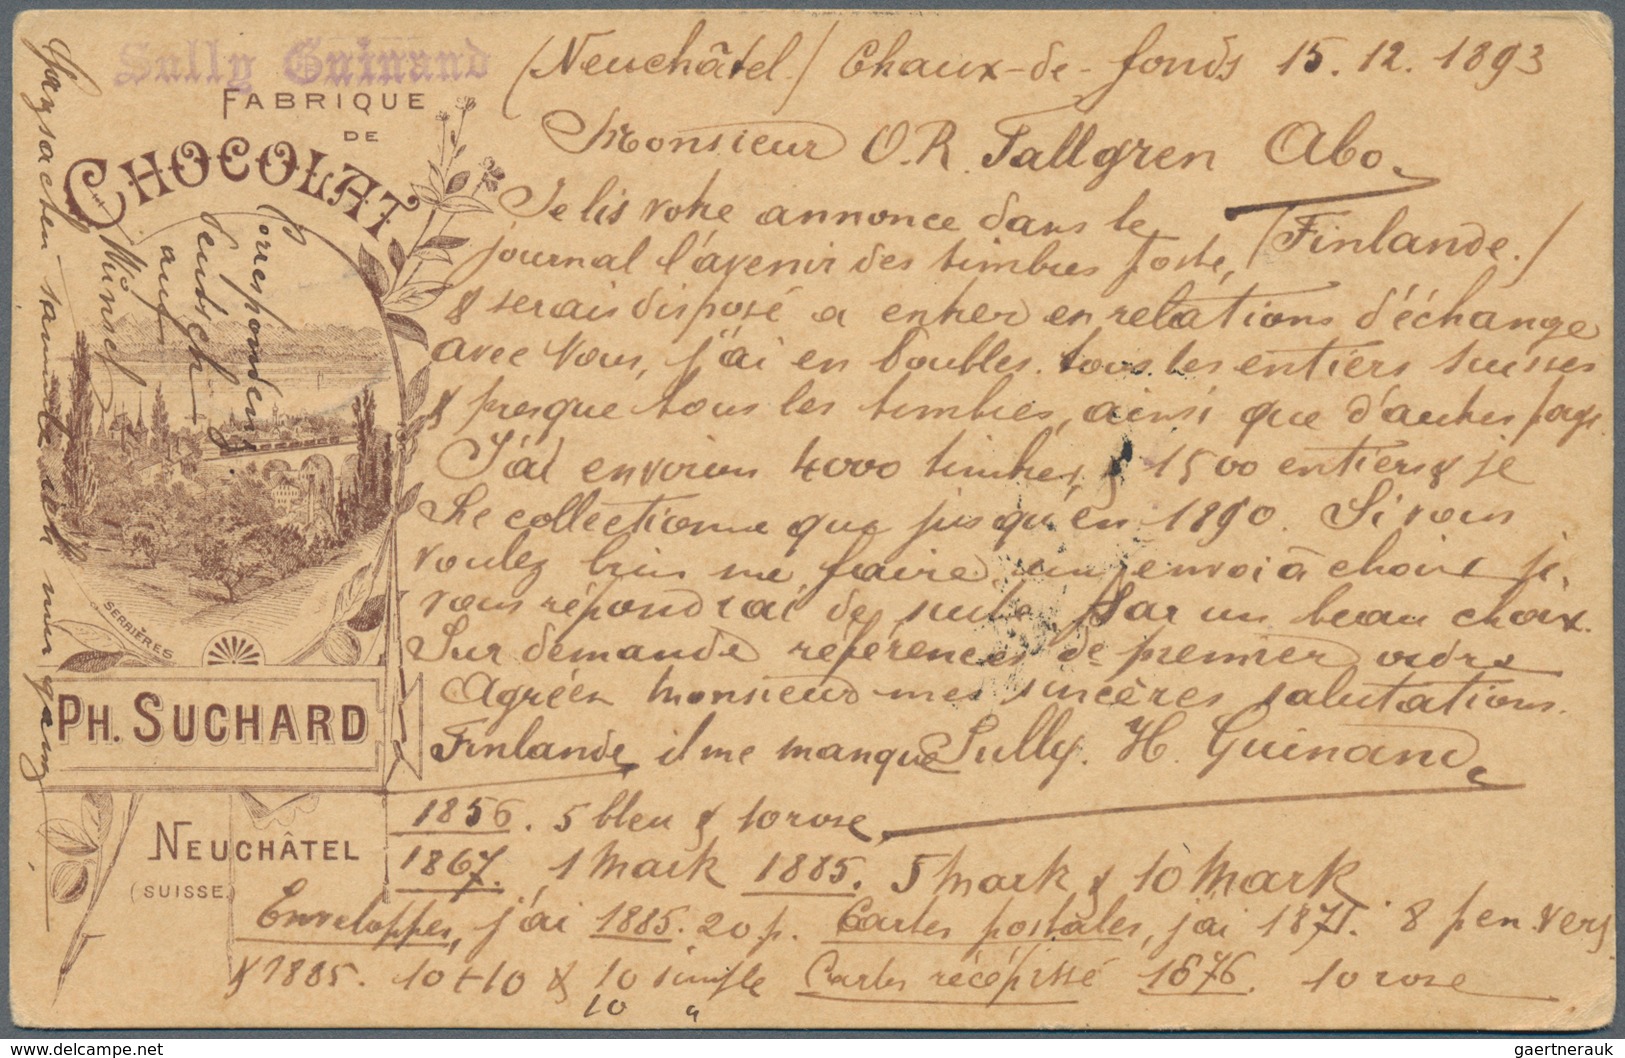 Sully Guinand
FABRIQUE
DE
CHOCOLAT
SERRIÈRES
PH. SUCHARD
NEUCHÂTEL
(SUISSE)
(Neuchâtel) Chaux-de-fonds 15.12.1893
Monsieur O.R. Tallgren Abo.
Je lis votre annonce dans le (Finlande.)
journal l'avenir des timbres poste,
& serais disposé a entrer en relations d'échange
avec vous, j'ai en doubles tous les entiers suisses
& presque tous les timbres, ainsi que d'autres pays.
J'ai environ 4000 timbres & 1500 entiers & je
ne collectionne que jusqu'en 1890. Si vous
voulez bien me faire un envoi à choix je
vous répondrai de suite par un beau choix.
Sur demande références de premier ordre
Agréez monsieur mes sincères salutations.
Finlande il me manque Sully. H. Guinand
1856. 5 bleu & 10 rose
1867. 1 Mark 1885. 5 Mark & 10 Mark
Enveloppes, j'ai 1885. 20 p. Cartes postales, j'ai 1871. 8 pen. vert
& 1885. 10+10 & 10 simple Cartes récépissé 1876. 10 rose
10 "
Correspondenz
deutsch
auf
Wunsch
Ganzsachen sammle ich nur ganz